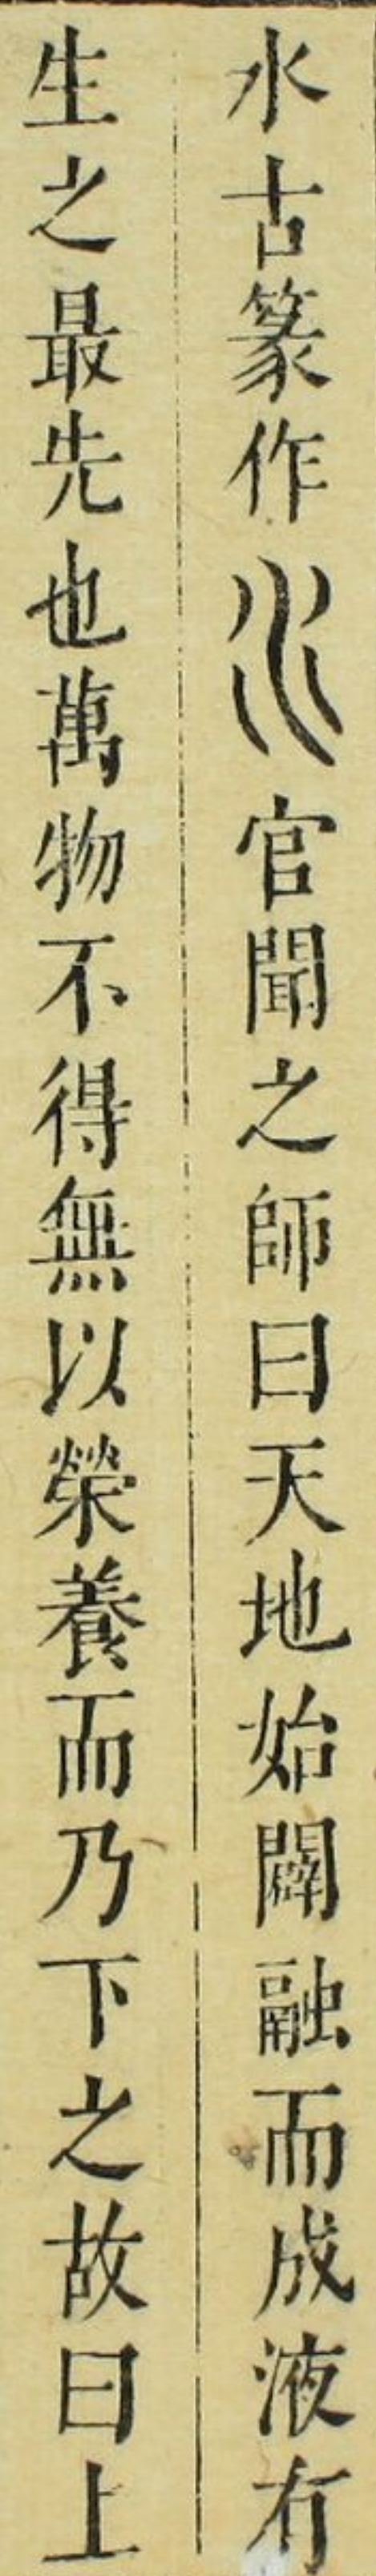 水古篆作𣱱官聞之師曰天地始闢融而成液有
生之最先也萬物不得無以榮養而乃下之故曰上